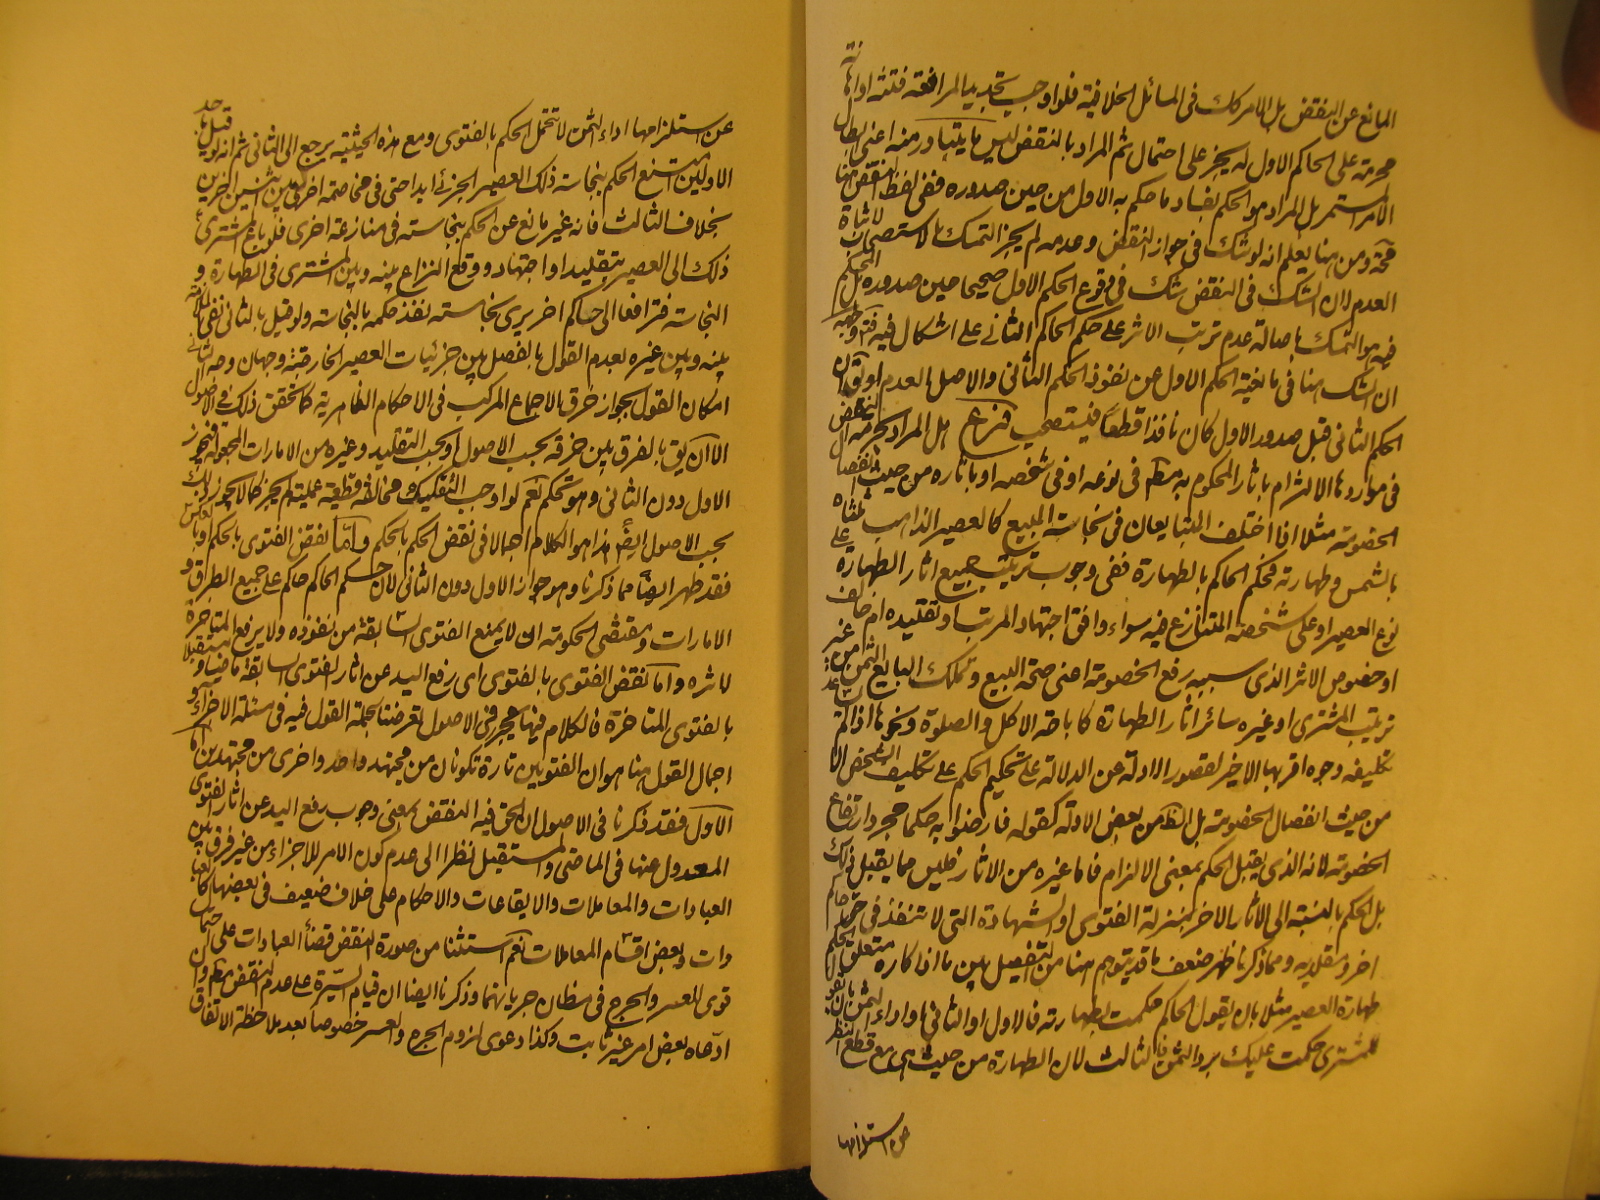 المانع عن النقض بل الامر كك في المسائل الخلافية فلو اوجب تجديد المرافعة فتنة او اهانة
محرمة على الحاكم الاول لم يجز على احتمال ثم المراد بالنقض ليس ما يتبادر منه اعنى ابطال
الأمر المستمر بل المراد هو الحكم بفساد ما حكم به الاول من حين صدوره ففى لفظ النقض هنا
ومن هنا يعلم انه لو شك في جواز النقض وعدمه لم يجز التمسك بالاستصحاب لاثبات
العدم لان الشك في النقض شك في وقوع الحكم الاول صحيحا حين صدوره بل المحكم
فيه هو التمسك باصالة عدم ترتب الاثر على حكم الحاكم الثاني على اشكال فيه
ان الشك هنا في مانعية الحكم الاول عن نفوذ الحكم الثاني والاصل العدم او يقال ان
الحكم الثاني قبل صدور الاول كان نافذا قطعا فيستصحب فرع هل المراد بحرمة النقض
في مواردها الالتزام باثار المحكوم به مطلقا في نوعه او في شخصه او باثاره من حيث انفصال
الخصومة مثلا اذا اختلف المتبايعان في نجاسة المبيع كالعصير الذاهب ثلثاه
بالشمس وطهارته فحكم الحاكم بالطهارة ففى وجوب ترتيب جميع اثار الطهارة على
نوع العصير او على شخصه المتنازع فيه سواء وافق اجتهاد المرتب او تقليده ام خالف
او خصوص الاثر الذى بسببه رفع الخصومة اعنى صحة البيع وتملك البايع الثمن من غير
ترتيب المشترى او غيره سائر اثار الطهارة كاباحة الاكل والصلوة ونحوها اذا لم
تكليفه وجوه اقربها الاخير لقصور الادلة عن الدلالة على تحكيم الحكم على تكليف الشخص الا
من حيث انفصال الخصومة بل الظ من بعض الادلة كقوله فارضوا به حكما مجرد ارتفاع
الخصومة لانه الذى يقبل الحكم بمعنى الالزام فاما غيره من الاثار فليس مما يقبل ذلك
بل الحكم بالنسبة الى الاثار الاخر بمنزلة الفتوى او الشهادة التى لا تنفذ في حق حاكم
اخر ومقلديه ومما ذكرنا ظهر ضعف ما قد يتوهم هنا من التفصيل بين ما اذا كان متعلق الحكم
طهارة العصير مثلا بان يقول الحاكم حكمت بطهارته فالاول او الثاني او اداء الثمن بان يقول
للمشترى حكمت عليك برد الثمن فالثالث لان الطهارة من حيث هى مع قطع النظر
عن استلزامها
عن استلزامها اداء الثمن لا تتحمل الحكم بالفتوى ومع هذه الحيثية يرجع الى الثاني ثم انه لو قيل باحد
الاولين امتنع الحكم بنجاسة ذلك العصير الجزئى ابدا حتى في مخاصمة اخرى بين شخصين اخرين
بخلاف الثالث فانه غير مانع عن الحكم بنجاسته في منازعة اخرى فلو باع المشترى
ذلك العصير بتقليد او اجتهاد ووقع النزاع بينه وبين المشترى في الطهارة و
النجاسة فترافعا الى حاكم اخر يرى نجاسته نفذ حكمه بالنجاسة ولو قيل بالثاني ففى
بينه وبين غيره لعدم القول بالفصل بين جزئيات العصير الخارجية وجهان وجه الثاني
امكان القول بجواز خرق الاجماع المركب في الاحكام الظاهرية كما تحقق ذلك في الاصول
الا ان يق بالفرق بين خرقه بحسب الاصول او بحسب التقليد وغيره من الامارات المجعولة فيجوز
الاول دون الثاني وهو تحكم نعم لو اوجب التفكيك مخالفة قطعية عملية لم يجز كما لا يجوز ذلك
بحسب الاصول ايضا هذا هو الكلام اجمالا في نقض الحكم بالحكم واما نقض الفتوى بالحكم او بالعكس
فقد ظهر ايضا مما ذكرنا وهو جواز الاول دون الثاني لان حكم الحاكم حاكم على جميع الطرق و
الامارات ومقتضى الحكومة ان لا يمنع الفتوى السابقة من نفوذه ولا يرفع المتاخرة
لاثره واما نقض الفتوى بالفتوى اى رفع اليد عن اثار الفتوى السابقة ماضيا ومستقبلا
بالفتوى المتاخرة فالكلام فيها محرر في الاصول تعرضنا لجملة القول فيه في مسئلة الاجزاء و
اجمال القول هنا هو ان الفتويين تارة تكونان من مجتهد واحد واخرى من مجتهدين اما
الاول فقد ذكرنا في الاصول ان الحق فيه النقض بمعنى وجوب رفع اليد عن اثار الفتوى
المعدول عنها في الماضى والمستقبل نظرا الى عدم كون الامر للاجزاء من غير فرق بين
العبادات والمعاملات والايقاعات والاحكام على خلاف ضعيف في بعضها كالعبا
دات وبعض اقسام المعاملات نعم استثنا من صورة النقض قضاء العبادات على احتمال
قوى للعسر والحرج في مظان جريانهما وذكرنا ايضا ان قيام السيرة على عدم النقض مطلقا وان
ادعاه بعض امر غير ثابت وكذا دعوى لزوم الحرج والعسر خصوصا بعد ملاحظة الاتفاق